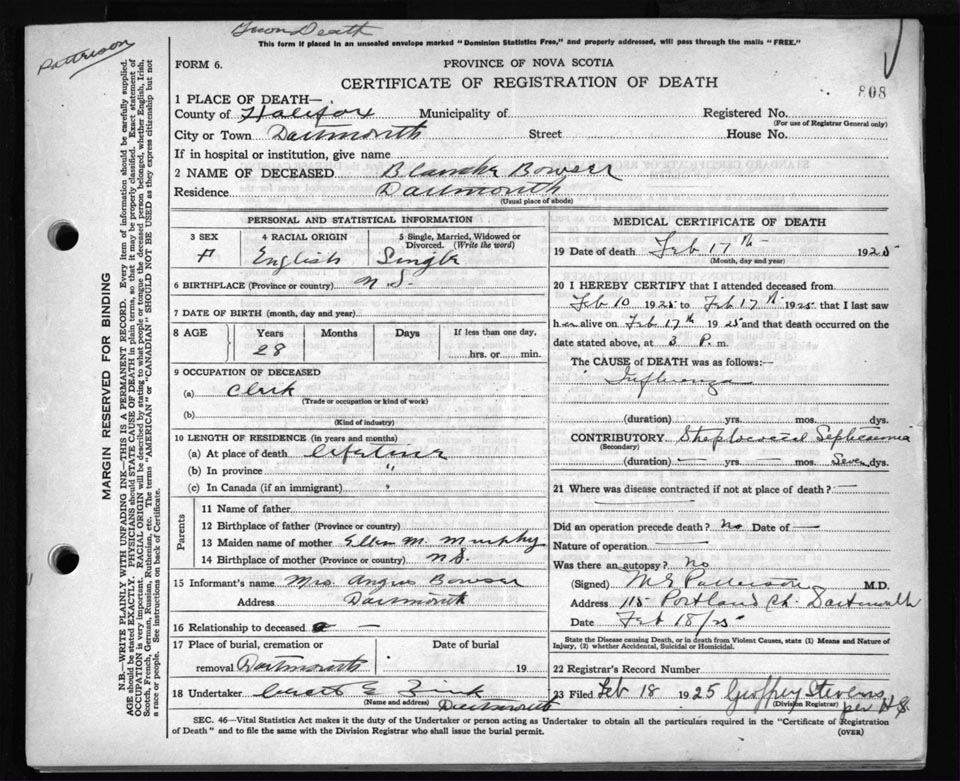 Town Death
Patterson
This form if placed in an unsealed envelope marked "Dominion Statistics Free," and properly addressed, will pass through the mails "FREE."
FORM 6.
PROVINCE OF NOVA SCOTIA
CERTIFICATE OF REGISTRATION OF DEATH
808
1 PLACE OF DEATH—
County of Halifax Municipality of Registered No.
(For use of Registrar General only)
City or Town Dartmouth Street House No.
If in hospital or institution, give name
2 NAME OF DECEASED Blanche Bowser
Residence Dartmouth
(Usual place of abode)
PERSONAL AND STATISTICAL INFORMATION
3 SEX 4 RACIAL ORIGIN 5 Single, Married, Widowed or Divorced. (Write the word)
F English Single
6 BIRTHPLACE (Province or country) N S.
7 DATE OF BIRTH (month, day and year)
8 AGE Years Months Days If less than one day,
28 hrs. or min.
9 OCCUPATION OF DECEASED
(a) Clerk
(Trade or occupation or kind of work)
(b)
(Kind of industry)
10 LENGTH OF RESIDENCE (in years and months)
(a) At place of death Lifetime
(b) In province "
(c) In Canada (if an immigrant) "
Parents
11 Name of father
12 Birthplace of father (Province or country)
13 Maiden name of mother Ellen M. Murphy
14 Birthplace of mother (Province or country) N.S.
15 Informant's name Mrs. Angus Bowser
Address Dartmouth
16 Relationship to deceased —
17 Place of burial, cremation or Date of burial
removal Dartmouth 19
18 Undertaker E. Zink
(Name and address) Dartmouth
MEDICAL CERTIFICATE OF DEATH
19 Date of death Feb 17th 1925
(Month, day and year)
20 I HEREBY CERTIFY that I attended deceased from
Feb 10 1925 to Feb 17th 1925 that I last saw
her alive on Feb 17th 1925 and that death occurred on
date stated above, at 3 P. m.
The CAUSE OF DEATH was as follows:
Influenza
(duration) yrs. mos. dys.
CONTRIBUTORY Streptococcal Septicaemia
(Secondary)
(duration) — yrs. — mos. Seven dys.
21 Where was disease contracted if not at place of death? —
Did an operation precede death? No Date of —
Nature of operation —
Was there an autopsy? No
(Signed) M S Patterson M.D.
Address 115 Portland St. Dartmouth
Date Feb 18/25
State the Disease causing Death, or in death from Violent Causes, state (1) Means and Nature of
Injury, (2) whether Accidental, Suicidal or Homicidal.
22 Registrar's Record Number
23 Filed Feb 18 1925 Geoffrey Stevens
(Division Registrar) per HS
SEC. 46—Vital Statistics Act makes it the duty of the Undertaker or person acting as Undertaker to obtain all the particulars required in the "Certificate of Registration
of Death" and to file the same with the Division Registrar who shall issue the burial permit.
(OVER)
MARGIN RESERVED FOR BINDING
N.B.—WRITE PLAINLY WITH UNFADING INK—THIS IS A PERMANENT RECORD. Every item of information should be carefully supplied.
AGE should be stated EXACTLY. PHYSICIANS should STATE CAUSE OF DEATH in plain terms, so that it may be properly classified. Exact statement of
OCCUPATION is very important. RACIAL ORIGIN will be described by stating to what people or tongue the deceased person belonged, whether English, Irish,
Scotch, French, German, Russian, Ruthenian, etc. The terms "AMERICAN" or "CANADIAN" SHOULD NOT BE USED as they express citizenship but not
a race or people. See instructions on back of Certificate.